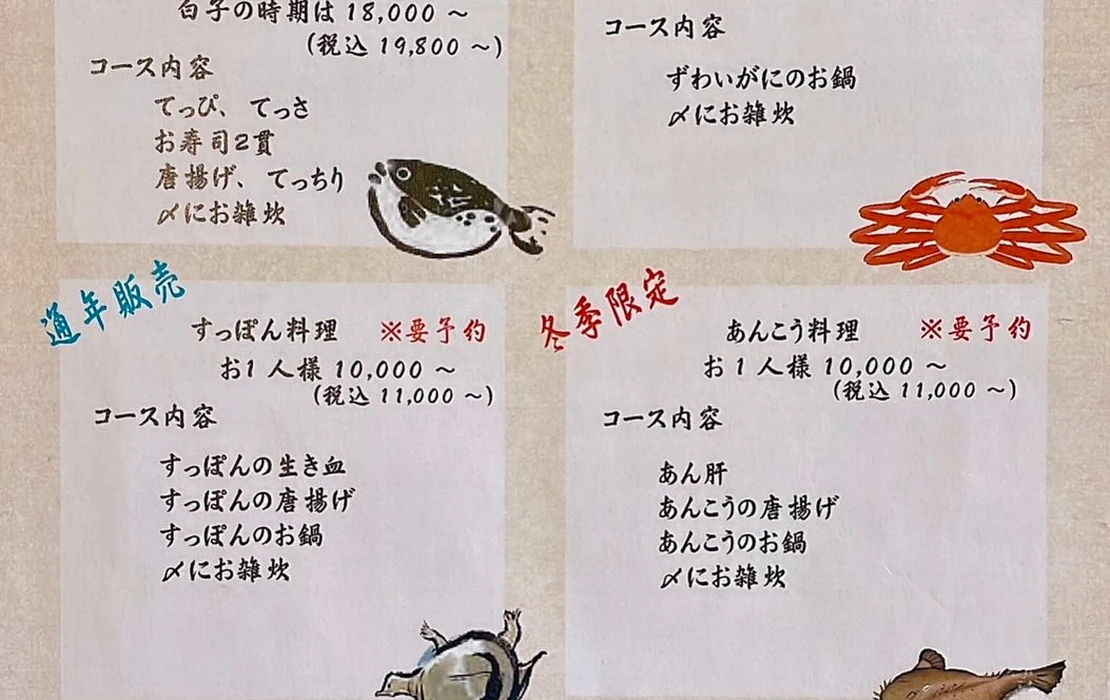 白子の時期は 18,000 ~
(税込 19,800 ~)
コース内容
てっぴ、 てっさ
お寿司2貫
唐揚げ、 てっちり
〆にお雑炊
コース内容
ずわいがにのお鍋
〆にお雑炊
通年販売
すっぽん料理 ※要予約
お1人様 10,000 ~
(税込 11,000 ~)
コース内容
すっぽんの生き血
すっぽんの唐揚げ
すっぽんのお鍋
〆にお雑炊
冬季限定
あんこう料理 ※要予約
お1人様 10,000 ~
(税込 11,000 ~)
コース内容
あん肝
あんこうの唐揚げ
あんこうのお鍋
〆にお雑炊